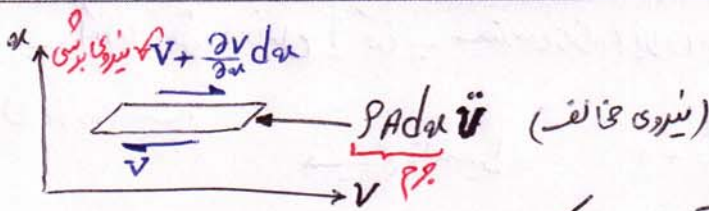 x
نیروی برشی V + ∂V/∂x dx
ρAdx ü (نیروی مخالف)
جرم
V
V